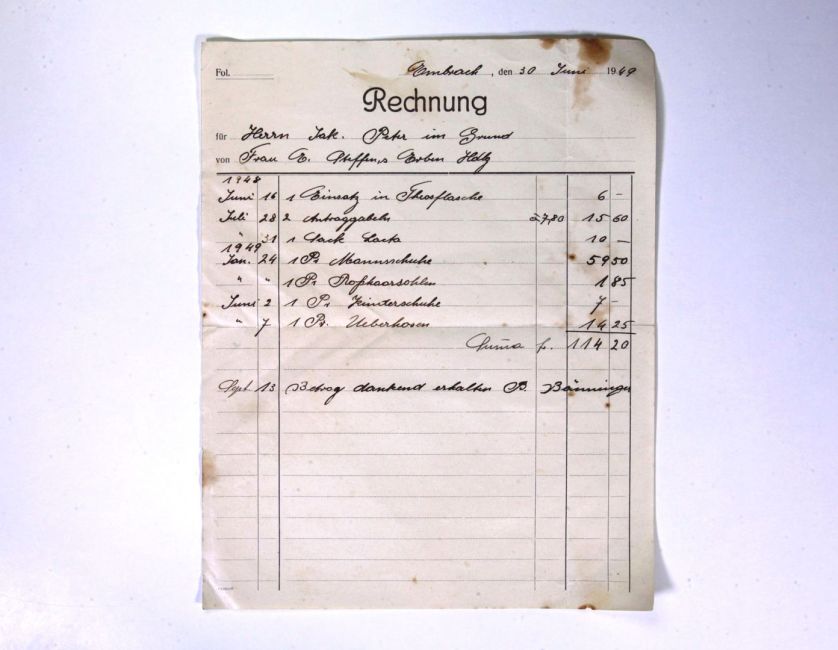 Fol. Embrach, den 30 Juni 1949
Rechnung
für Herrn Jak. Petr im Grund
von Frau E. Steffen's Erben Hdlg
1948
Juni 16 1 Einsatz in Thosflasche 6 –
Juli 28 2 Antraggabeln à 7.80 15 60
" 31 1 Sack 10 –
1949
Jan. 24 1 Pr Mannsschuhe 59 50
" " 1 Pr Roßhaarsohlen 1 85
Juni 2 1 Pr Kinderschuhe 7 –
" 7 1 Pr. Ueberhosen 14 25
Suma fr. 114 20
Sept. 13 Betrag dankend erhalten B. Bänninger